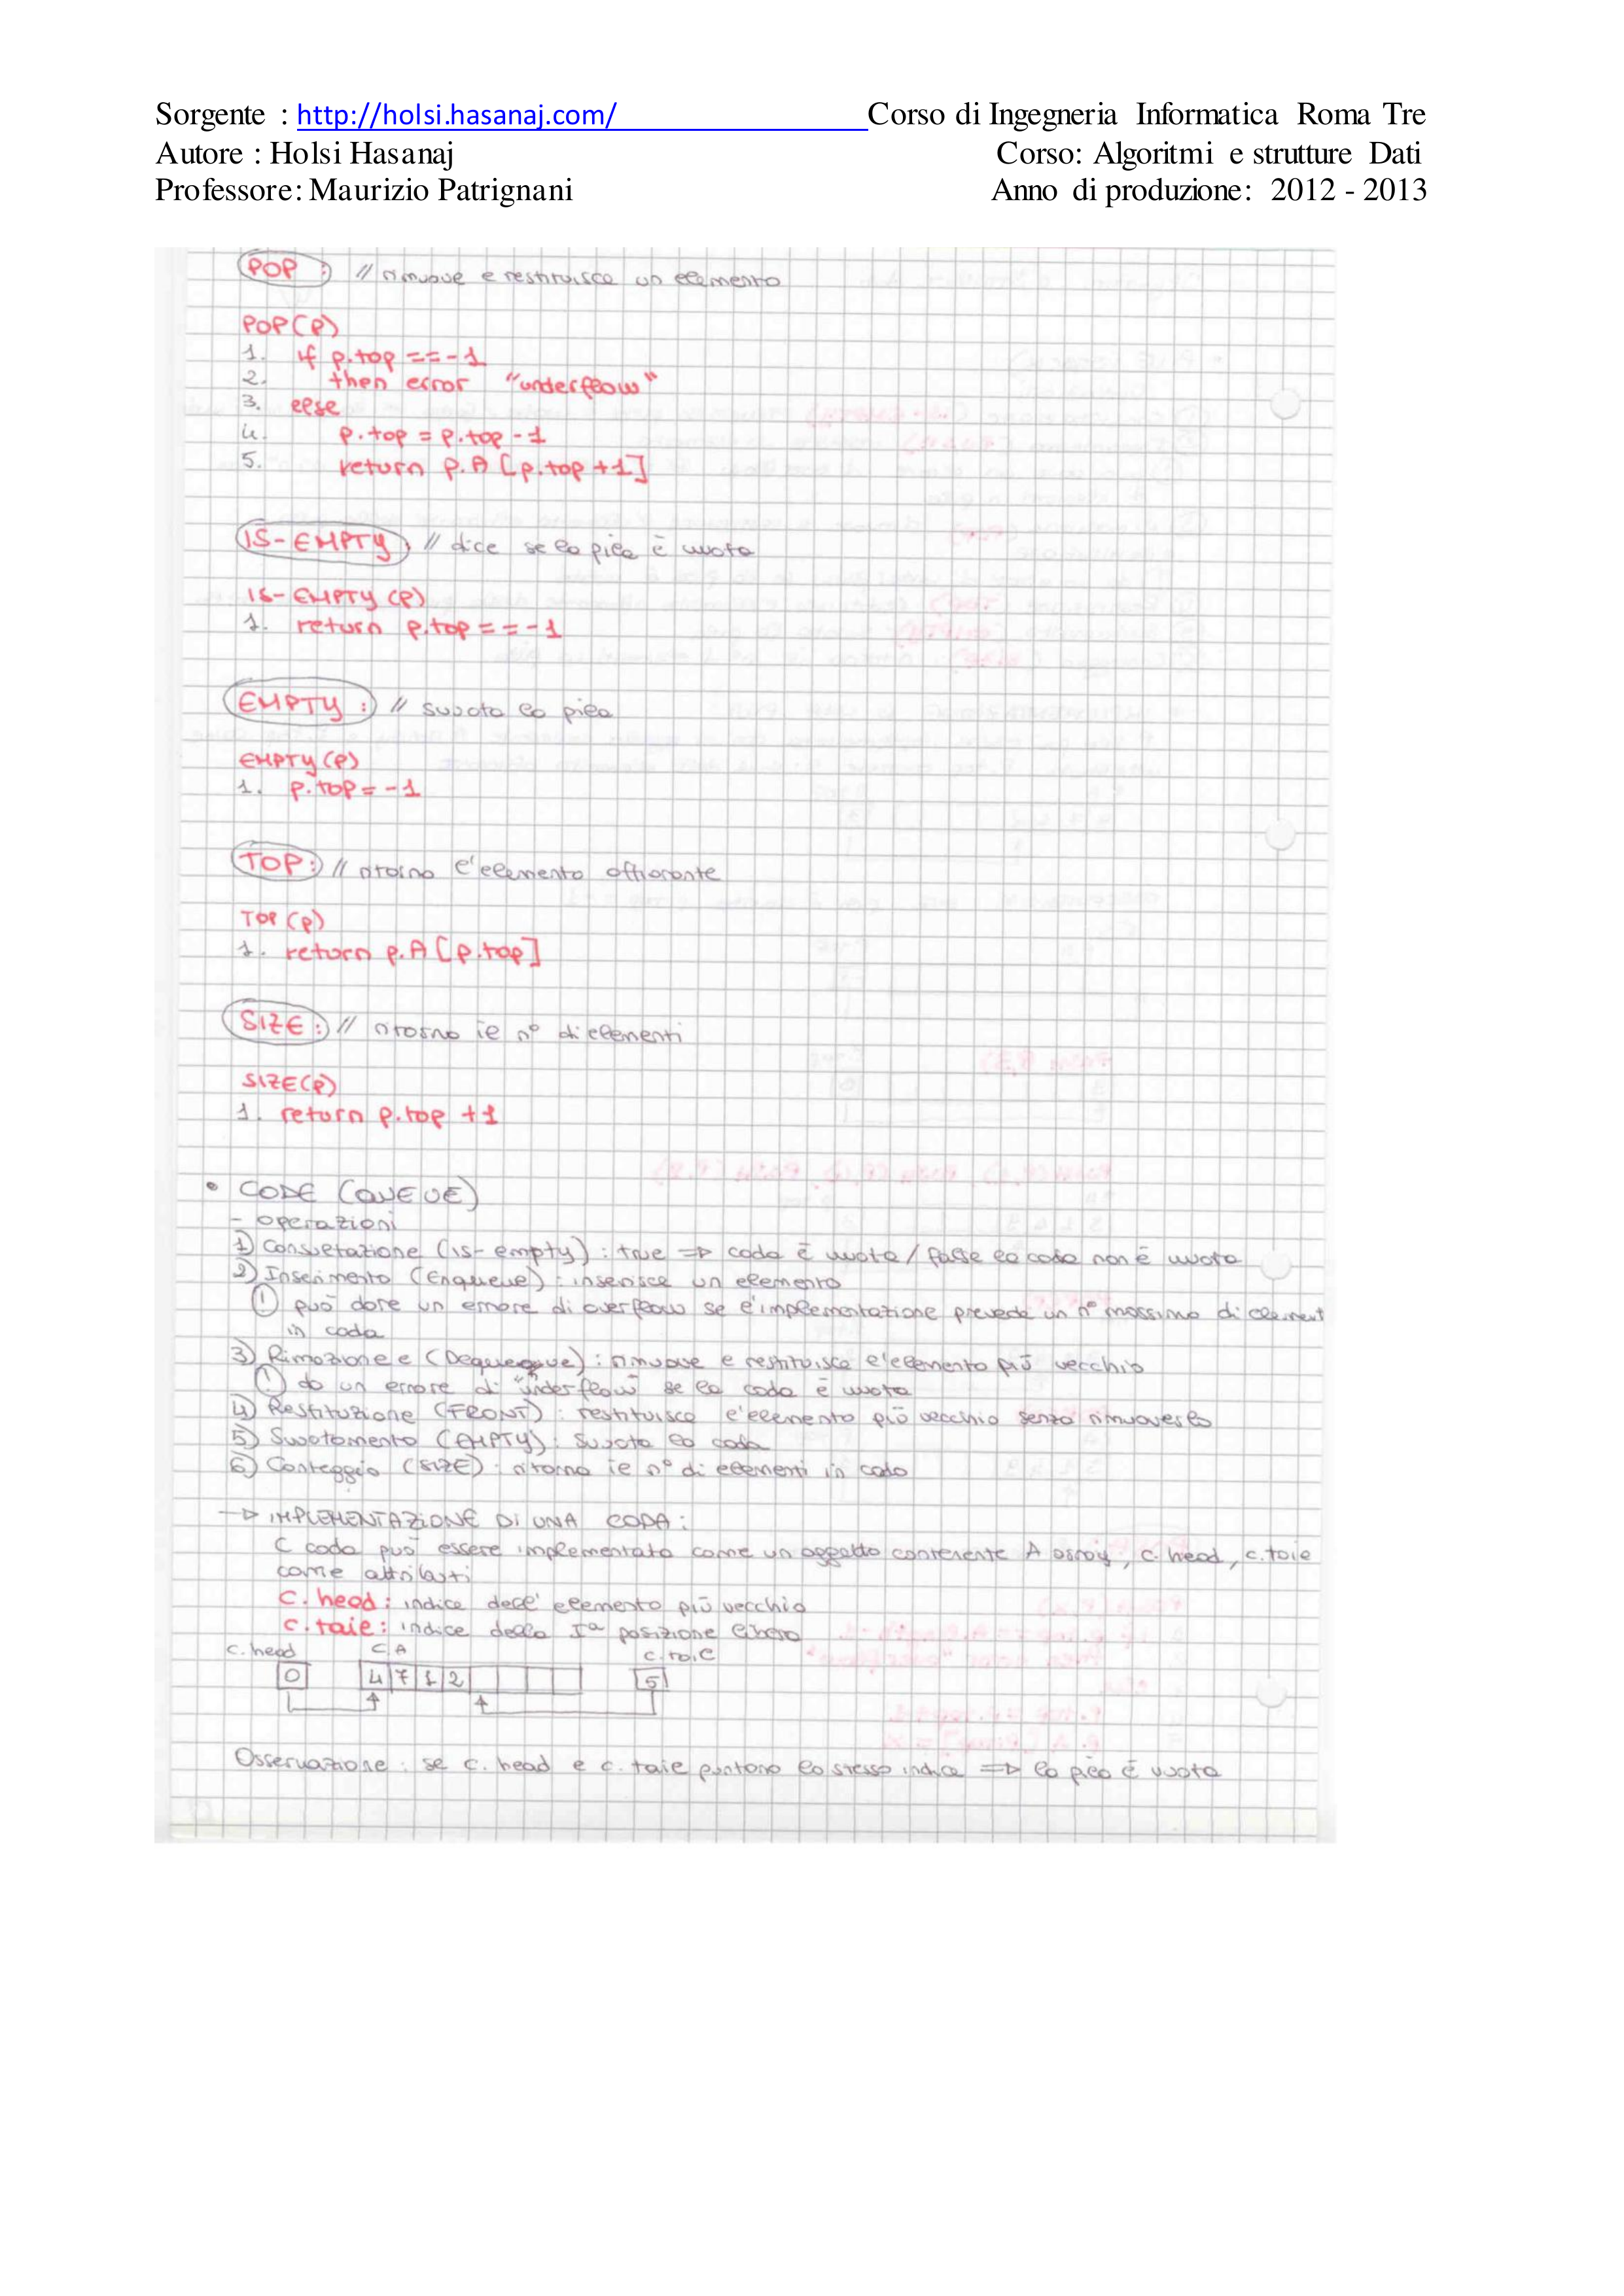 Sorgente : http://holsi.hasanaj.com/ Corso di Ingegneria Informatica Roma Tre
Autore : Holsi Hasanaj Corso: Algoritmi e strutture Dati
Professore: Maurizio Patrignani Anno di produzione: 2012 - 2013
POP : // rimuove e restituisce un elemento
POP(P)
1. if p.top == -1
2. then error "underflow"
3. else
4. p.top = p.top - 1
5. return p.A [p.top + 1]
IS-EMPTY : // dice se la pila è vuota
IS-EMPTY (P)
1. return p.top == -1
EMPTY : // svuota la pila
EMPTY (P)
1. p.top = -1
TOP : // ritorna l'elemento affiorante
TOP (P)
1. return p.A [p.top]
SIZE : // ritorna il n° di elementi
SIZE(P)
1. return p.top + 1
• CODE (QUEUE)
- operazioni
1) Consultazione (is-empty) : true => coda è vuota / false la coda non è vuota
2) Inserimento (Enqueue) : inserisce un elemento
! può dare un errore di overflow se l'implementazione prevede un n° massimo di element
in coda
3) Rimozione e (Dequeueue) : rimuove e restituisce l'elemento più vecchio
! da un errore di "underflow" se la coda è vuota
4) Restituzione (FRONT) : restituisce l'elemento più vecchio senza rimuoverlo
5) Svuotamento (EMPTY) : svuota la coda
6) Conteggio (SIZE) : ritorna il n° di elementi in coda
-> IMPLEMENTAZIONE DI UNA CODA :
C coda può essere implementata come un oggetto contenente A array, c.head, c.tail
come attributi
C.head : indice dell'elemento più vecchio
C.tail : indice della Iª posizione libera
c.head C.A c.tail
0 4 7 1 2 5
Osservazione : se c.head e c.tail puntano lo stesso indice => la pila è vuota